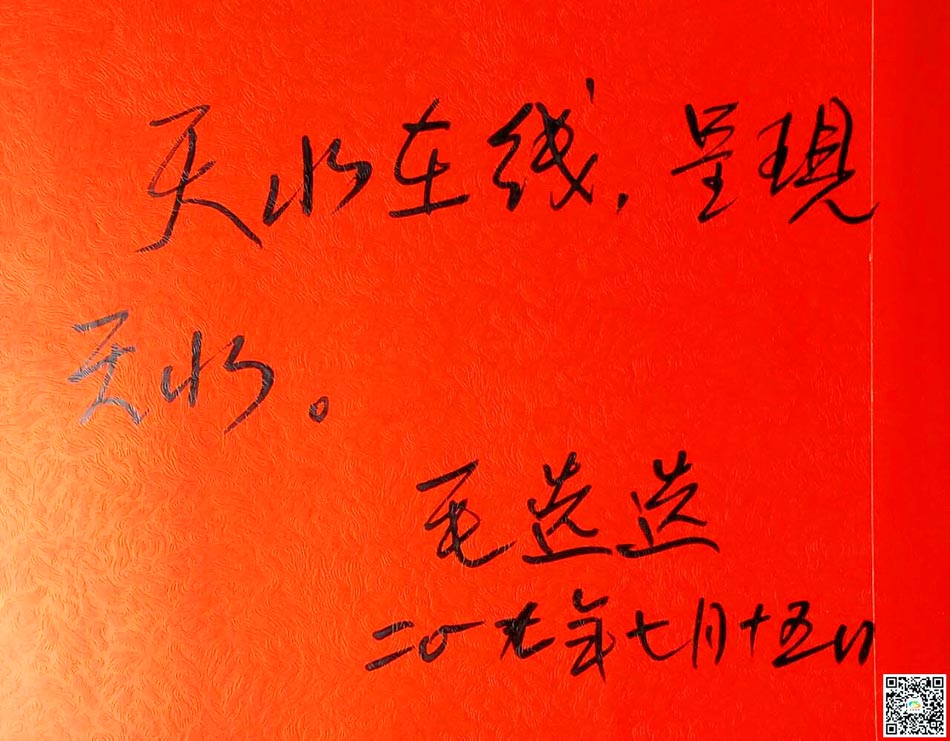 天水在线，呈现
天水。
毛选选
二〇一七年七月十五日